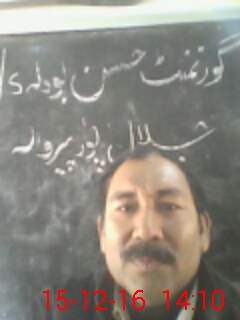 گورنمنٹ حسن لودلہ
جلال پور پیروالہ
15-12-16 14:10